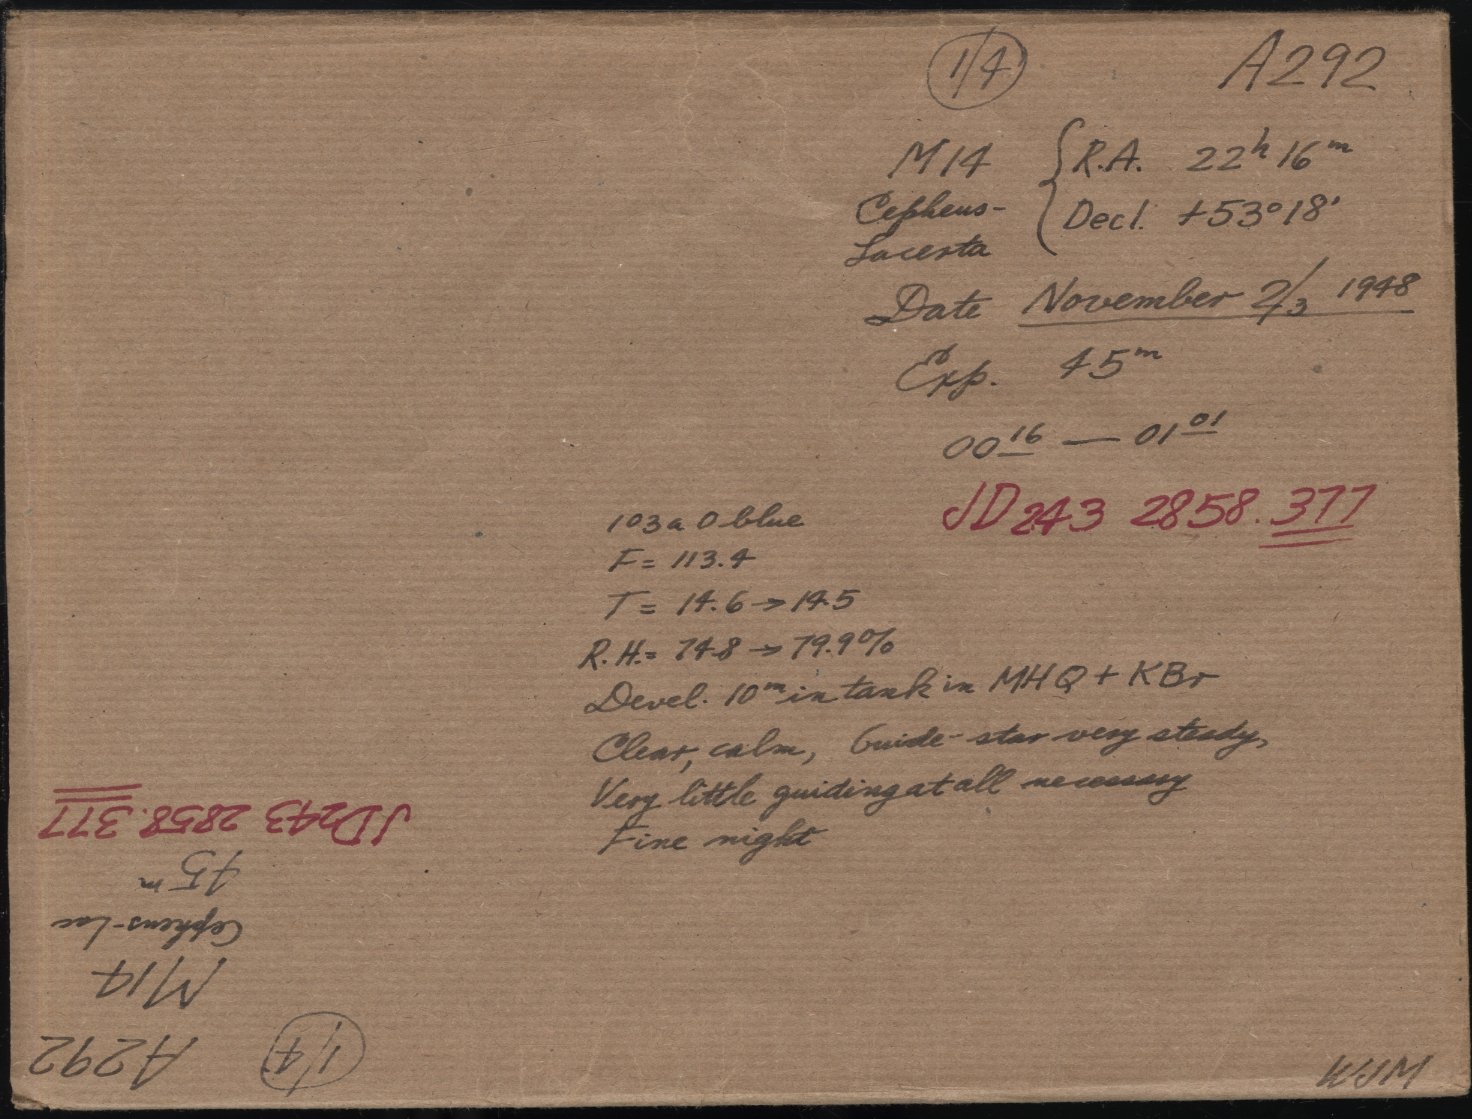 1/4 A292
M14 { R.A. 22h 16m
Cepheus- { Decl. +53° 18'
Lacerta
Date November 2/3 1948
Exp. 45m
00 16 — 01 01
JD 243 2858.377
103a O blue
F = 113.4
T = 14.6 → 14.5
R.H. = 74.8 → 79.9%
Devel. 10m in tank in MHQ + KBr
Clear, calm, Guide-star very steady,
Very little guiding at all necessary
Fine night
A292 1/4
M14
Cepheus-Lac
45m
JD 243 2858.377
WJM